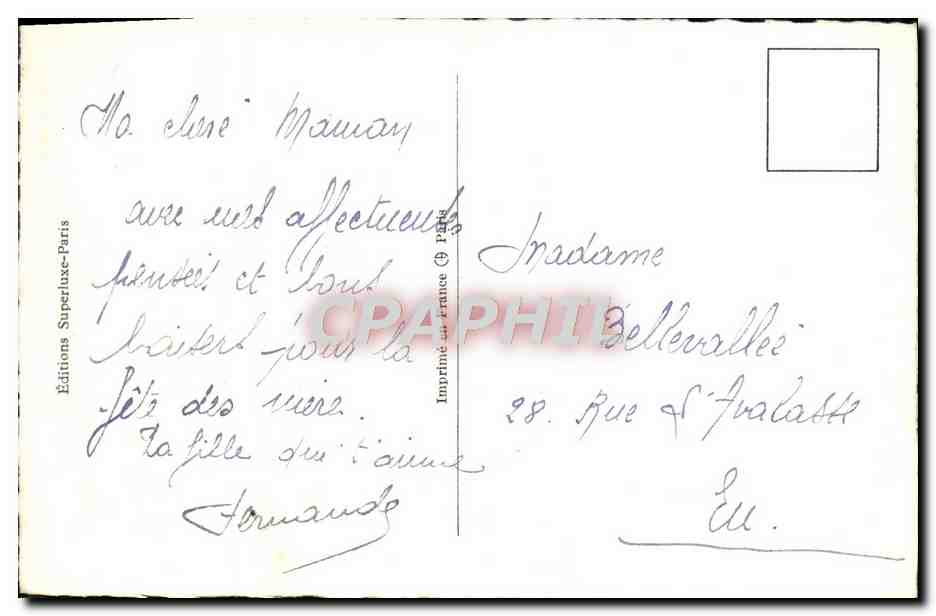 Ma cheré Maman
avec mes affectueuses
pensées et bons
baisers pour la
fête des mère.
Ta fille qui t'aime
Fernande
Éditions Superluxe-Paris
Imprimé en France Paris
CPAPHIL
Madame
Bellevallée
28. Rue d'
Eu.